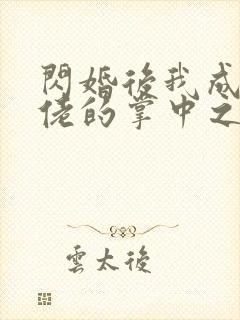 閃婚後我成
佬的掌中之
雲太後